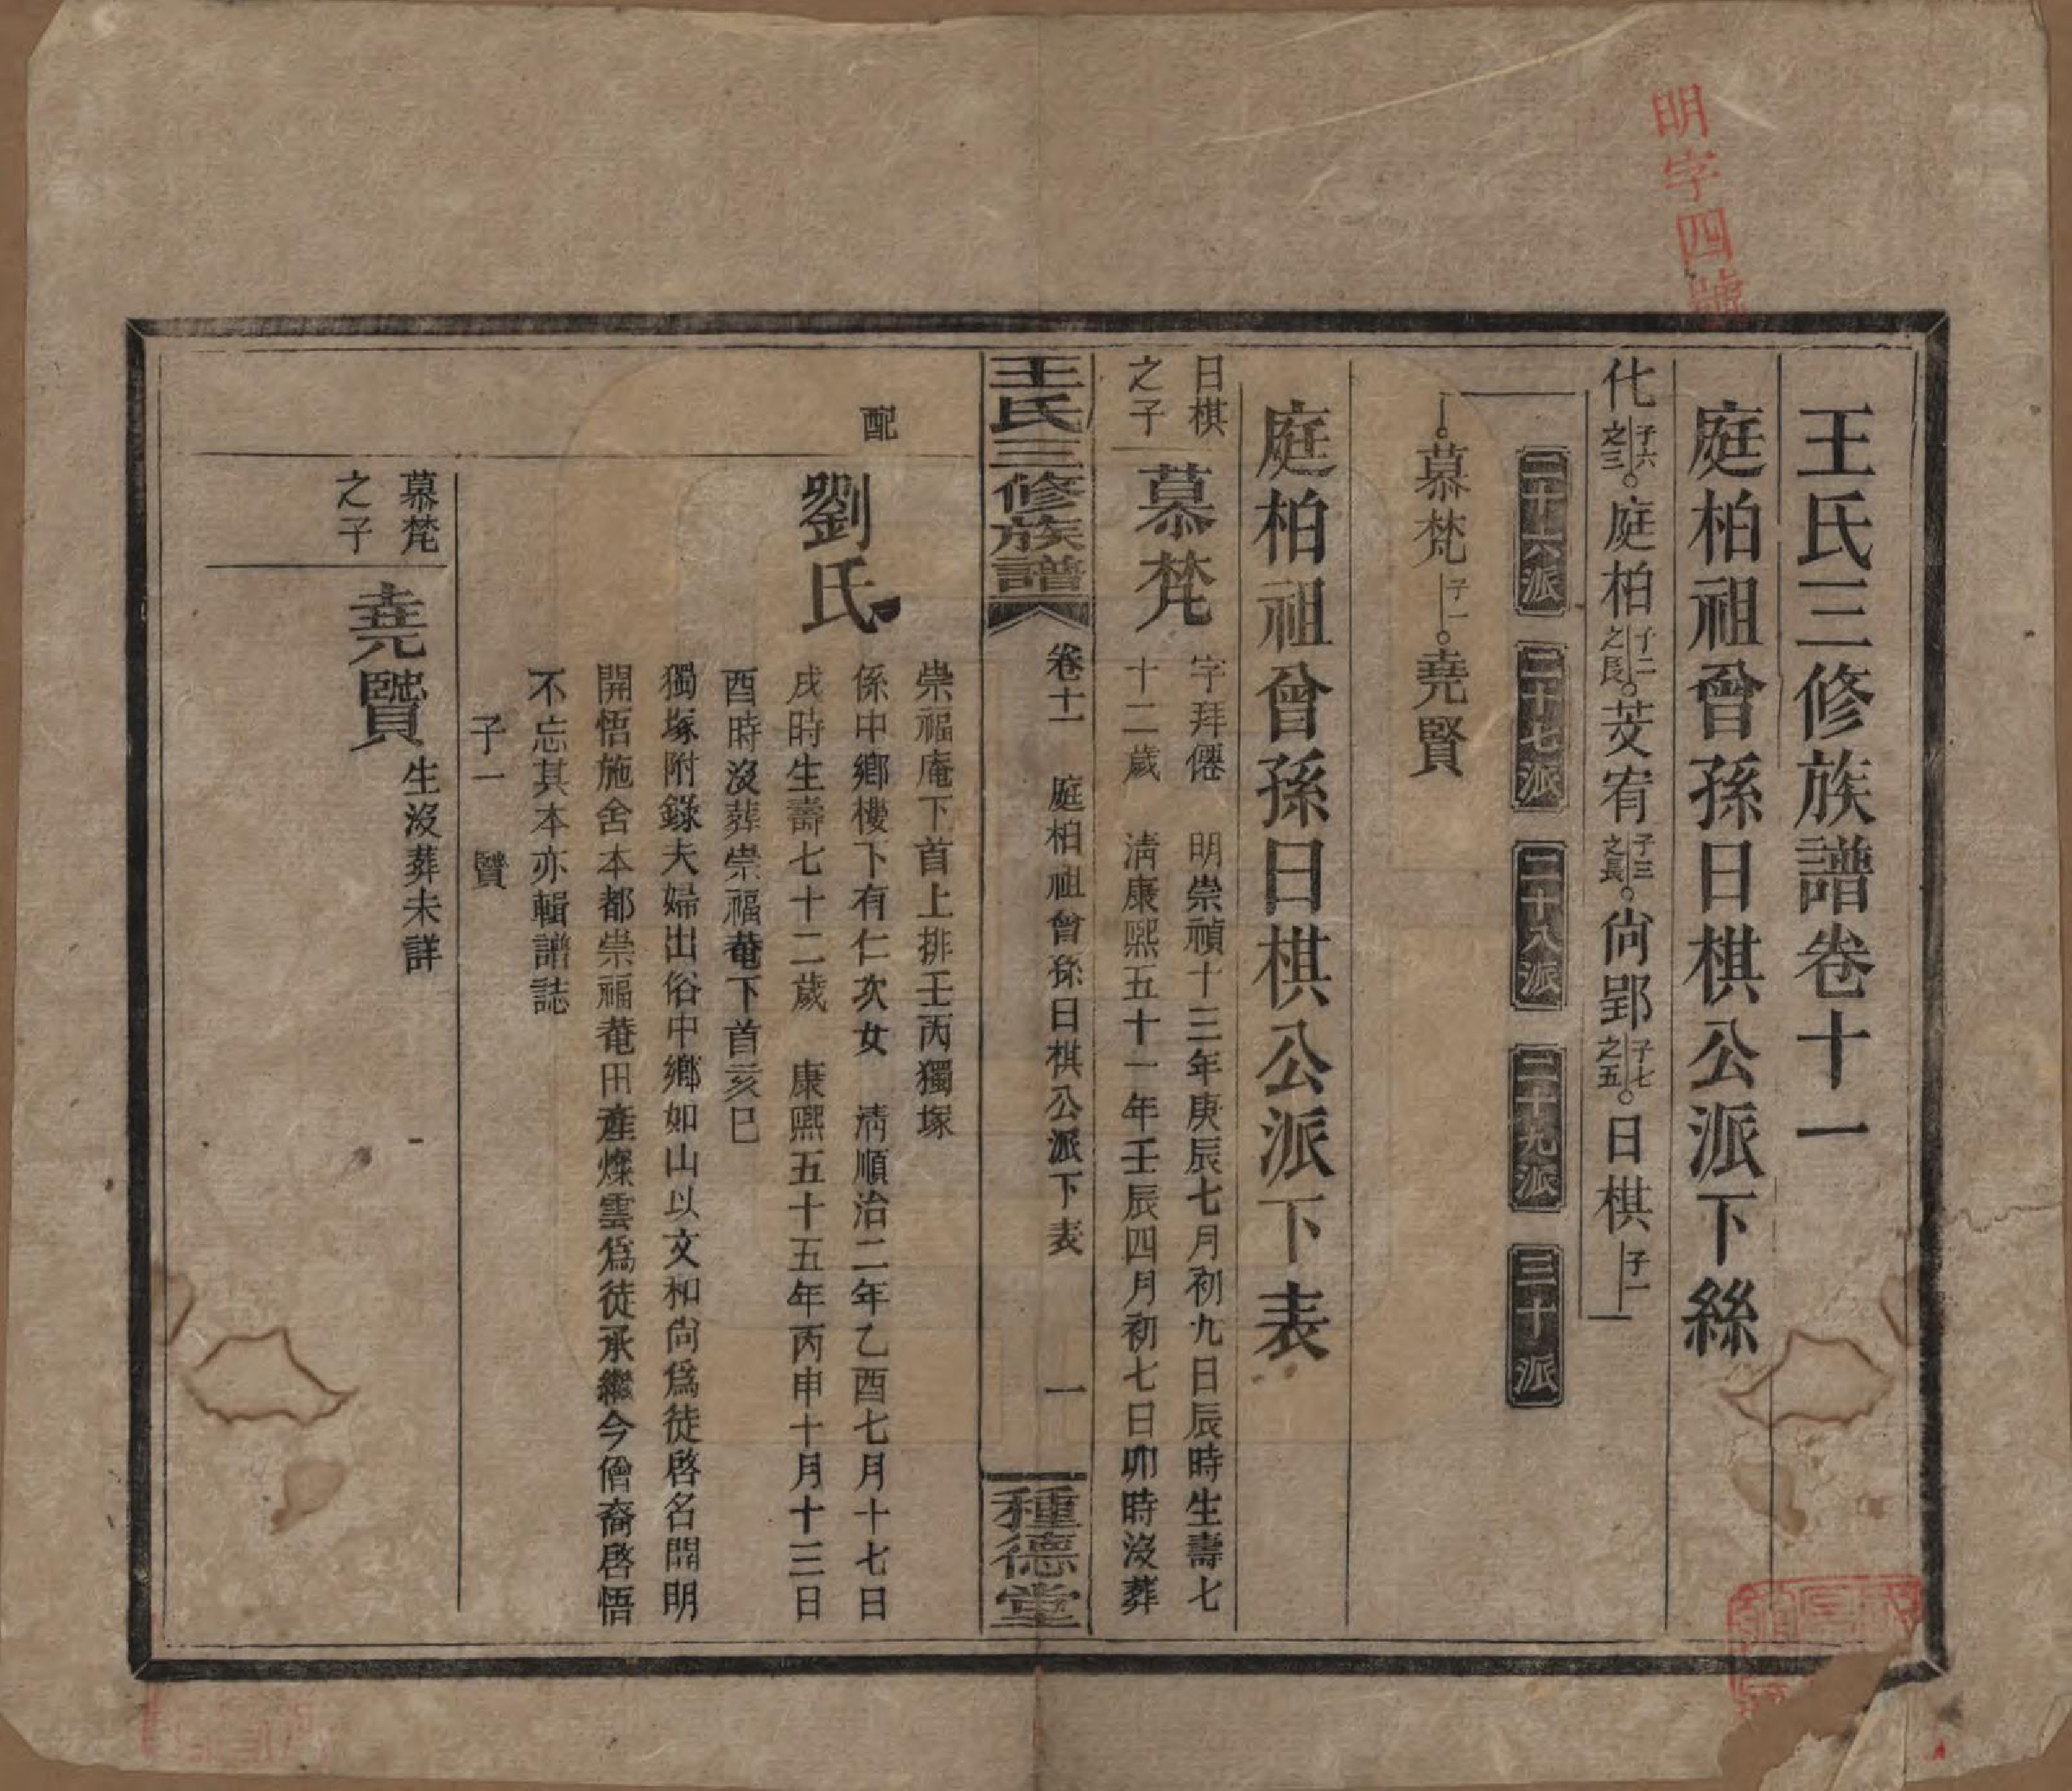 明字四號
王氏三修族譜卷十一
庭柏祖曾孫日棋公派下絲
化子六之三。庭柏子二之長。芰宥子三之長。尙郢子七之五。日棋子一
二十六派 二十七派 二十八派 二十九派 三十派
慕梵子一。堯賢
庭柏祖曾孫日棋公派下表
日棋之子 慕梵 字拜僊 明崇禎十三年庚辰七月初九日辰時生壽七
十二歲 淸康熙五十一年壬辰四月初七日卯時沒葬
王氏三修族譜 卷十一 庭柏祖曾孫日棋公派下表 一 種德堂
崇福庵下首上排壬丙獨塚
配 劉氏 係中鄉樓下有仁次女 淸順治二年乙酉七月十七日
戌時生壽七十二歲 康熙五十五年丙申十月十三日
酉時沒葬崇福菴下首亥巳
獨塚附錄夫婦出俗中鄉如山以文和尙爲徒啓名開明
開悟施舍本都崇福菴田產燦雲爲徒承繼今僧裔啓悟
不忘其本亦輯譜誌
子一 賢
慕梵之子 堯賢 生沒葬未詳